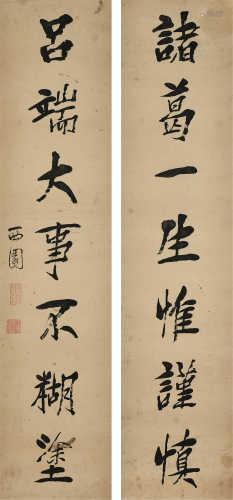 諸葛一生惟謹慎
呂端大事不糊塗
西園